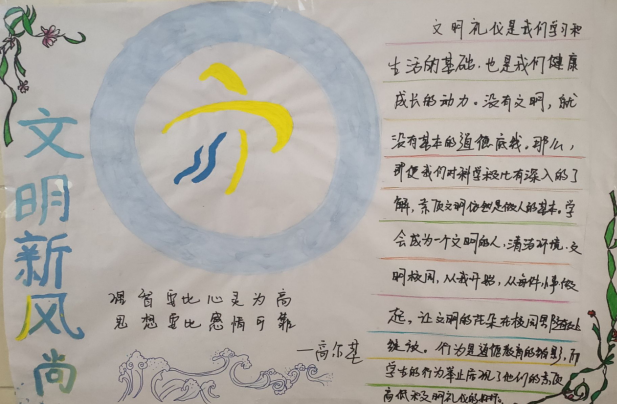 文明新风尚
理智要比心灵为高
思想要比感情可靠
—高尔基
文明礼仪是我们学习和
生活的基础,也是我们健康
成长的动力。没有文明,就
没有基本的道德底线。那么,
即使我们对科学技术有深入的了
解,文明仿佛是做人的基本。学
会成为一个文明的人,清洁环境,文
明校园,从我开始,从每件小事做
起。让文明的花朵在校园里处处
绽放。行为是道德教育的缩影,而
学生的行为举止体现了他们的
高低和文明礼仪的